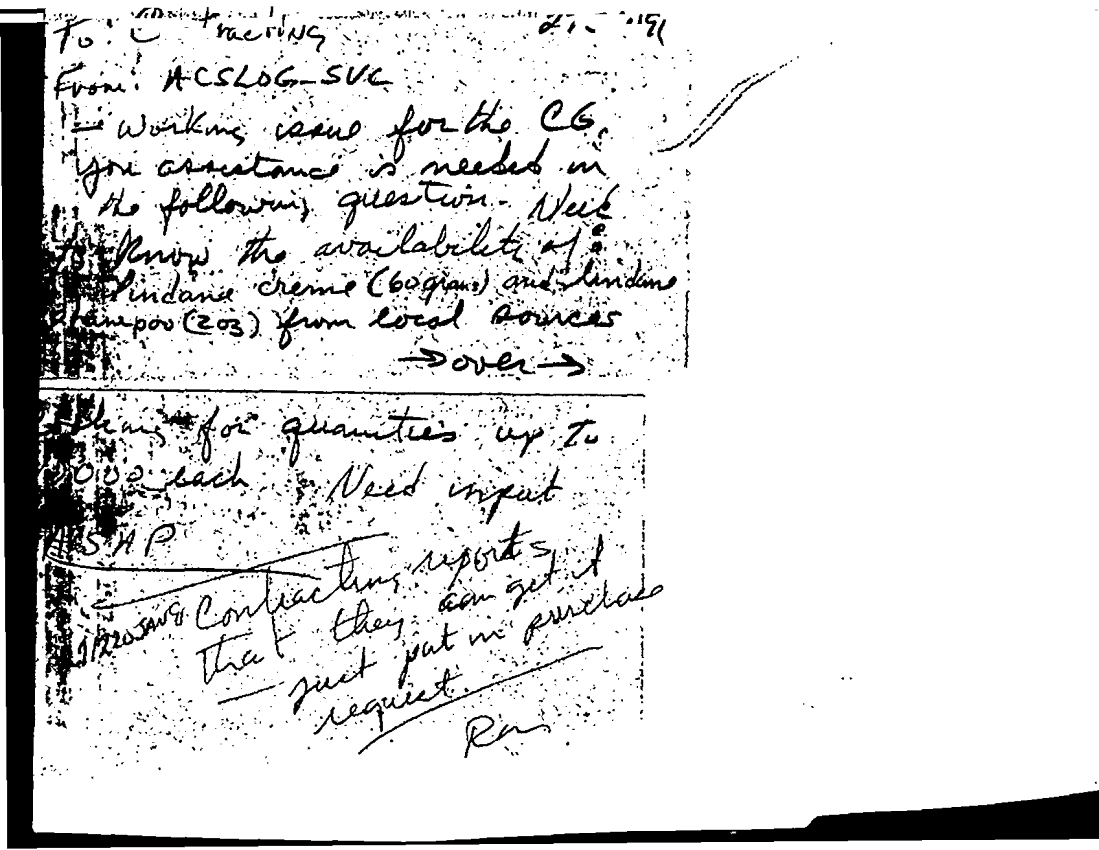 To: Contracting
From: ACSLOG-SVC
- Working issue for the CG.
You assistance is needed in
the following question. Need
to know the availability of:
Lindane creme (60 grams) and lindane
shampoo (2oz) from local sources
→ over →
for quantities up to
each. Need input
ASAP
Contracting reports
that they can get it
- just put in purchase
request.